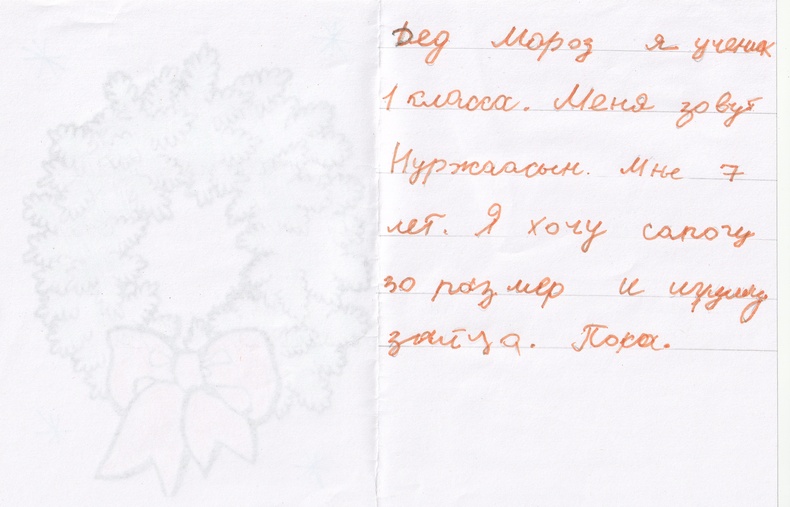 Дед Мороз я ученик
1 класса. Меня зовут
Нуржаасын. Мне 7
лет. Я хочу сапогу
30 размер и игрушу
зайца. Пока.